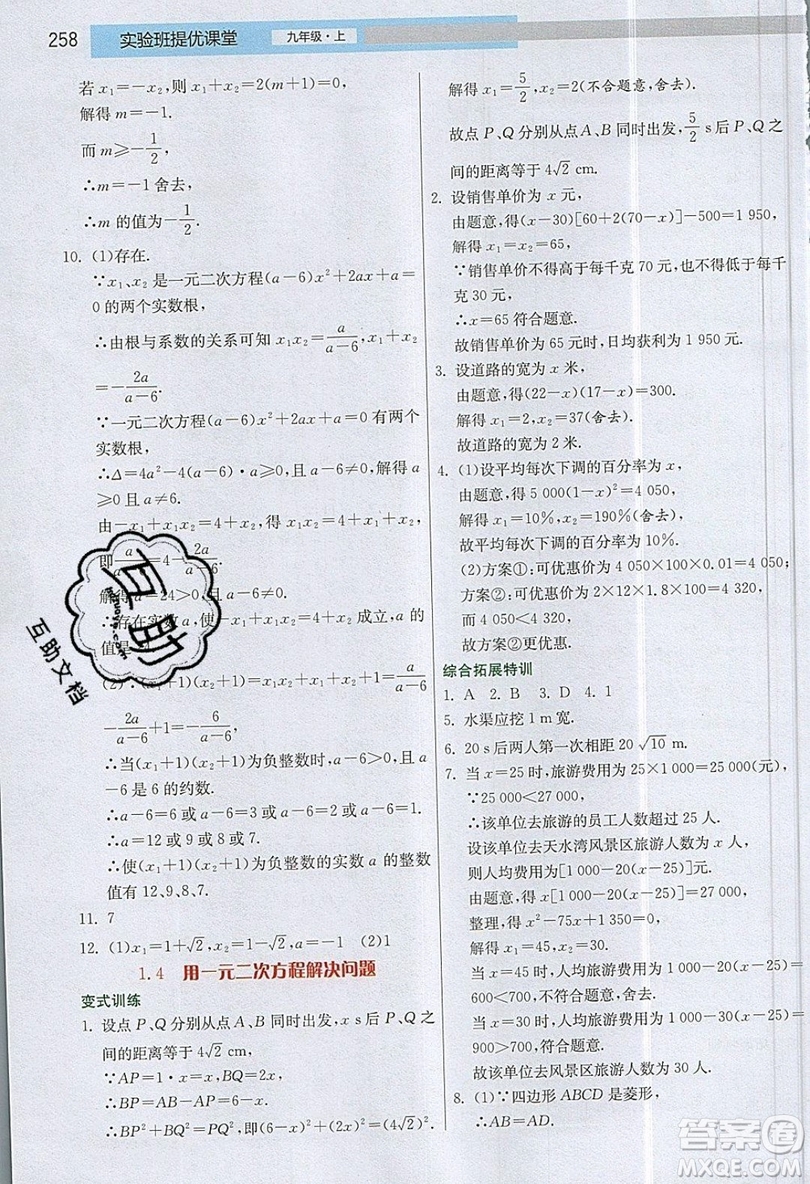 258 实验班提优课堂 九年级·上
若 x₁=-x₂,则 x₁+x₂=2(m+1)=0,
解得 m=-1.
而 m≥-1/2,
∴m=-1 舍去,
∴m 的值为-1/2.
10. (1)存在.
∵x₁、x₂ 是一元二次方程(a-6)x²+2ax+a=
0 的两个实数根,
∴由根与系数的关系可知 x₁x₂=a/(a-6),x₁+x₂
=-2a/(a-6).
∵一元二次方程(a-6)x²+2ax+a=0 有两个
实数根,
∴Δ=4a²-4(a-6)·a≥0,且 a-6≠0,解得 a
≥0 且 a≠6.
由-x₁+x₁x₂=4+x₂,得 x₁x₂=4+x₁+x₂,
即 a/(a-6)=4-2a/(a-6).
解得 a=24≥0,且 a-6≠0.
∴存在实数 a,使-x₁+x₁x₂=4+x₂ 成立,a 的
值是 24.
(2)∵(x₁+1)(x₂+1)=x₁x₂+x₁+x₂+1=a/(a-6)
-2a/(a-6)+1=-6/(a-6),
∴当(x₁+1)(x₂+1)为负整数时,a-6>0,且 a
-6 是 6 的约数.
∴a-6=6 或 a-6=3 或 a-6=2 或 a-6=1.
∴a=12 或 9 或 8 或 7.
∴使(x₁+1)(x₂+1)为负整数的实数 a 的整数
值有 12、9、8、7.
11. 7
12. (1)x₁=1+√2,x₂=1-√2, (2)1
1.4 用一元二次方程解决问题
变式训练
1. 设点 P、Q 分别从点 A、B 同时出发,x s 后 P、Q 之
间的距离等于 4√2 cm,
∵AP=1·x=x,BQ=2x,
∴PB=AB-AP=5-x.
∴BP²+BQ²=PQ²,即(5-x)²+(2x)²=(4√2)².
解得 x₁=5/2,x₂=2(不合题意,舍去).
故点 P、Q 分别从点 A、B 同时出发,5/2 s 后 P、Q 之
间的距离等于 4√2 cm.
2. 设销售单价为 x 元,
由题意,得(x-30)[60+2(70-x)]-500=1 950,
解得 x₁=x₂=65,
∵销售单价不得高于每千克 70 元,也不得低于每千
克 30 元,
∴x=65 符合题意.
故销售单价为 65 元时,日均获利为 1 950 元.
3. 设道路的宽为 x 米,
由题意,得(22-x)(17-x)=300.
解得 x₁=2,x₂=37(舍去).
故道路的宽为 2 米.
4. (1)设平均每次下调的百分率为 x,
由题意,得 5 000(1-x)²=4 050,
解得 x₁=10%,x₂=190%(舍去),
故平均每次下调的百分率为 10%.
(2)方案①:可优惠价为 4 050×100×0.01=4 050(元),
方案②:可优惠价为 2×12×1.8×100=4 320(元),
而 4 050<4 320,
故方案②更优惠.
综合拓展特训
1. A 2. B 3. D 4. 1
5. 水渠应挖 1 m 宽.
6. 20 s 后两人第一次相距 20√10 m.
7. 当 x=25 时,旅游费用为 25×1 000=25 000(元),
∵25 000<27 000,
∴该单位去旅游的员工人数超过 25 人.
设该单位去天水湾风景区旅游人数为 x 人,
则人均费用为[1 000-20(x-25)]元.
由题意,得 x[1 000-20(x-25)]=27 000,
整理,得 x²-75x+1 350=0,
解得 x₁=45,x₂=30.
当 x=45 时,人均旅游费用为 1 000-20(x-25)=
600<700,不符合题意,应舍去.
当 x=30 时,人均旅游费用为 1 000-20(x-25)=
900>700,符合题意.
故该单位去风景区旅游人数为 30 人.
8. (1)∵四边形 ABCD 是菱形,
∴AB=AD.
互助
互助文档
答案圈
MXQE.COM